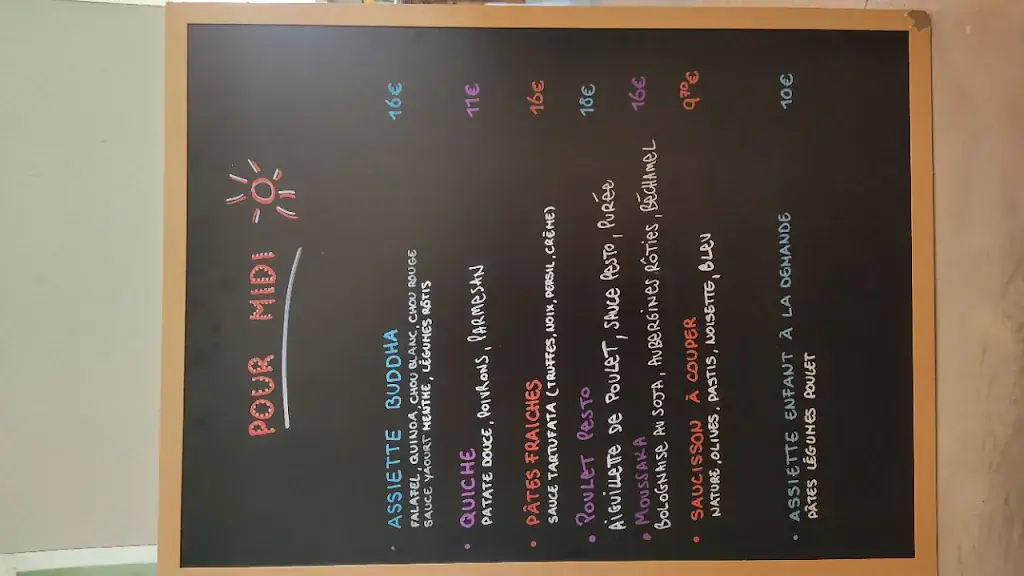 POUR MIDI
ASSIETTE BUDDHA 16€
FALAFEL, QUINOA, CHOU BLANC, CHOU ROUGE
SAUCE YAOURT MENTHE, LÉGUMES RÔTIS
QUICHE 11€
PATATE DOUCE, POIVRONS, PARMESAN
PÂTES FRAICHES 16€
SAUCE TARTUFATA (TRUFFES, NOIX, PERSIL, CRÈME)
POULET PESTO 18€
AIGUILLETTE DE POULET, SAUCE PESTO, PURÉE
MOUSSAKA 16€
BOLOGNAISE AU SOJA, AUBERGINES RÔTIES, BÉCHAMEL
SAUCISSON À COUPER 9,50€
NATURE, OLIVES, PASTIS, NOISETTE, BLEU
ASSIETTE ENFANT À LA DEMANDE 10€
PÂTES LÉGUMES POULET